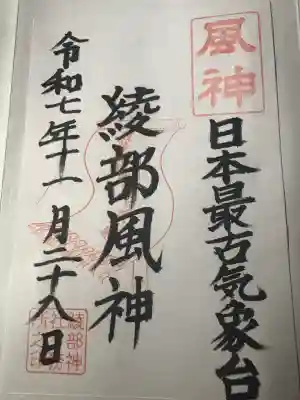 風神
日本最古気象台
綾部風神
令和七年十一月二十八日
綾部神
社社務
所之印